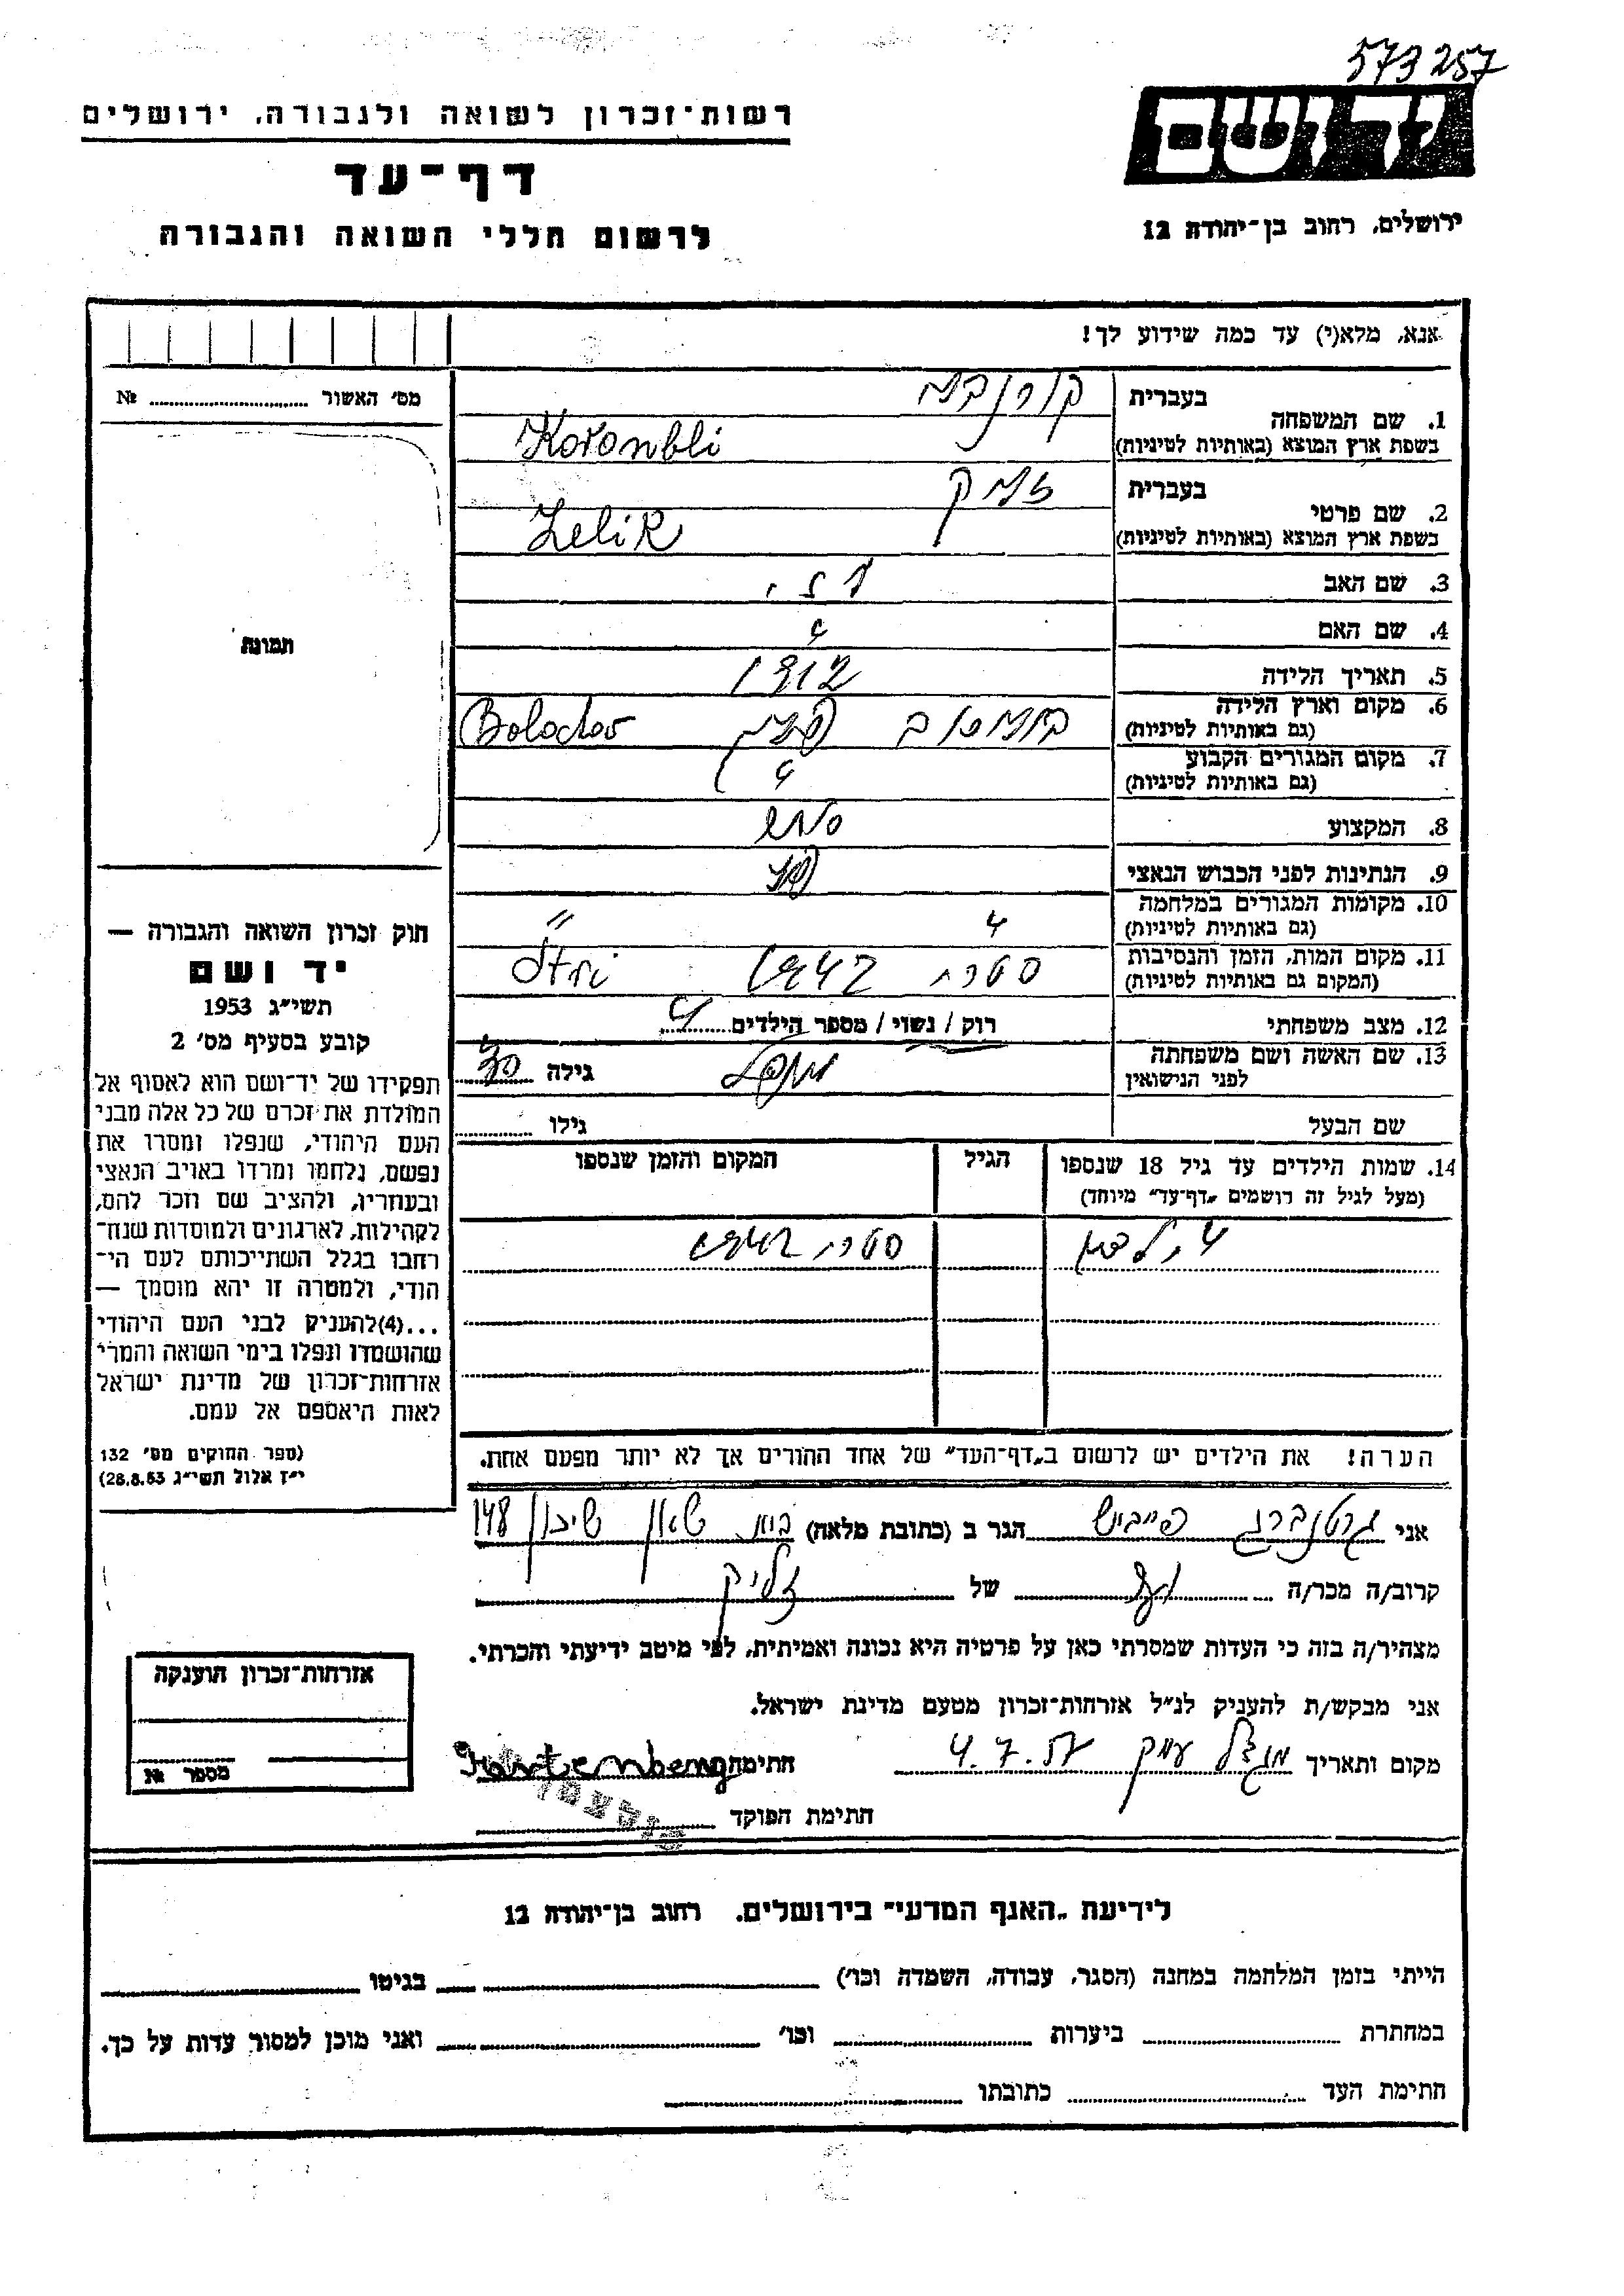 573257
ידושם
רשות־זכרון לשואה ולגבורה, ירושלים
דף־עד
לרשום חללי השואה והגבורה
ירושלים, רחוב בן־יהודה 12
אנא, מלא(י) עד כמה שידוע לך!
מס׳ האשור № 
תמונה
חוק זכרון השואה והגבורה —
יד ושם
תשי״ג 1953
קובע בסעיף מס׳ 2
תפקידו של יד־ושם הוא לאסוף אל
המולדת את זכרם של כל אלה מבני
העם היהודי, שנפלו ומסרו את
נפשם, נלחמו ומרדו באויב הנאצי
ובעוזריו, ולהציב שם וזכר להם,
לקהילות, לארגונים ולמוסדות שנח־
רבו בגלל השתייכותם לעם הי־
הודי, ולמטרה זו יהא מוסמך —
...(4)להעניק לבני העם היהודי
שהושמדו ונפלו בימי השואה והמרי
אזרחות־זכרון של מדינת ישראל
לאות היאספם אל עמם.
(ספר החוקים מס׳ 132
י״ז אלול תשי״ג 28.8.53)
בעברית
1. שם המשפחה
בשפת ארץ המוצא (באותיות לטיניות) Koronbli
בעברית זליק
2. שם פרטי
בשפת ארץ המוצא (באותיות לטיניות) Zelik
3. שם האב
4. שם האם
5. תאריך הלידה 1912
6. מקום וארץ הלידה
(גם באותיות לטיניות) פולין
7. מקום המגורים הקבוע
(גם באותיות לטיניות) "
8. המקצוע
9. הנתינות לפני הכבוש הנאצי
10. מקומות המגורים במלחמה
(גם באותיות לטיניות) " "
11. מקום המות, הזמן והנסיבות
(המקום גם באותיות לטיניות) סטרי 1942 Stri
12. מצב משפחתי רוק / נשוי / מספר הילדים 4
13. שם האשה ושם משפחתה
לפני הנישואין גילה 30
שם הבעל גילו
14. שמות הילדים עד גיל 18 שנספו הגיל המקום והזמן שנספו
(מעל לגיל זה רושמים „דף־עד״ מיוחד)
4 ילדים סטרי 1942
הערה! את הילדים יש לרשום ב„דף־העד״ של אחד ההורים אך לא יותר מפעם אחת.
אני גרטנברג פייביש הגר ב (כתובת מלאה) בית שאן שיכון 148
קרוב/ה מכר/ה של זליק
מצהיר/ה בזה כי העדות שמסרתי כאן על פרטיה היא נכונה ואמיתית, לפי מיטב ידיעתי והכרתי.
אני מבקש/ת להעניק לנ״ל אזרחות־זכרון מטעם מדינת ישראל.
מקום ותאריך מגדל עמק 4.7.57 חתימה Gartenberg
חתימת הפוקד
אזרחות־זכרון הוענקה
מספר №
לידיעת „האגף המדעי״ בירושלים, רחוב בן־יהודה 12
הייתי בזמן המלחמה במחנה (הסגר, עבודה, השמדה וכו׳) בגיטו
במחתרת ביערות וכו׳ ואני מוכן למסור עדות על כך.
חתימת העד כתובתו